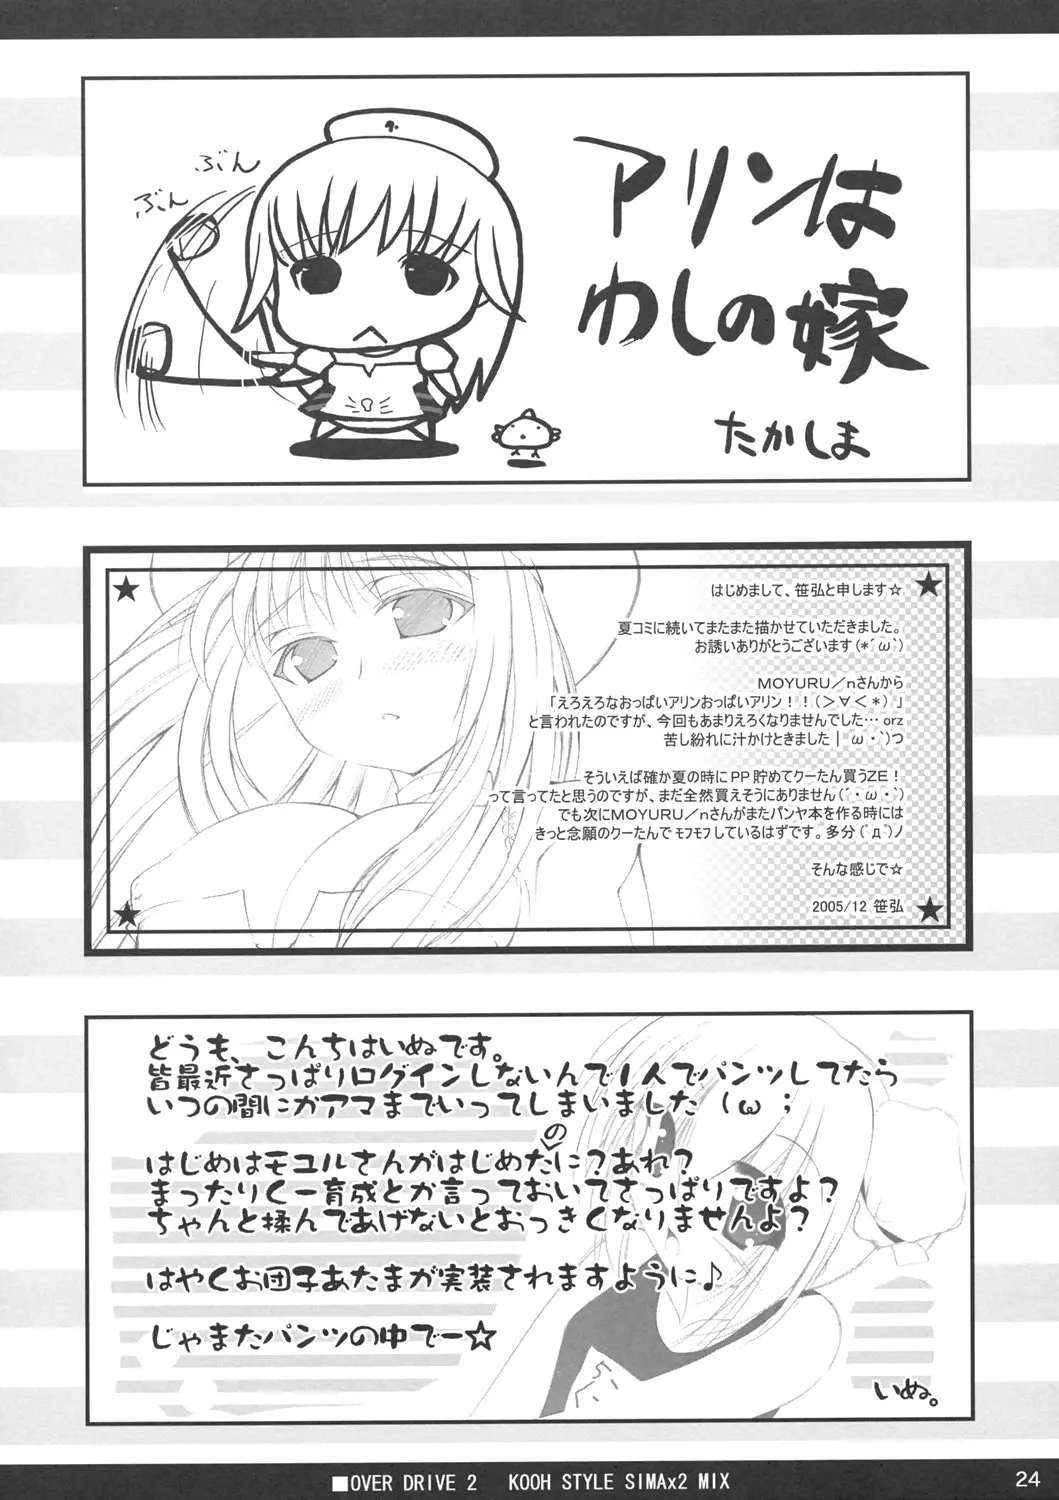 ぶん
ぶん
アリンは
わしの嫁
たかしま
はじめまして、笹弘と申します☆
夏コミに続いてまたまた描かせていただきました。
お誘いありがとうございます(*´ω`)
MOYURU／nさんから
「えろえろなおっぱいアリンおっぱいアリン！！(＞∀＜*)」
と言われたのですが、今回もあまりえろくなりませんでした… orz
苦し紛れに汁かけときました| ω・`)つ
そういえば確か夏の時に PP 貯めてクーたん買うZE！
って言ってたと思うのですが、まだ全然買えそうにありません(´・ω・`)
でも次にMOYURU／nさんがまたパンヤ本を作る時には
きっと念願のクーたんで ﾓﾌﾓﾌしているはずです。多分(ﾟдﾟ)ノ
そんな感じで☆
2005/12 笹弘
どうも、こんちはいぬです。
皆最近さっぱりログインしないんで1人でパンツしてたら
いつの間にかアマまでいってしまいました（ω；
はじめはモユルさんがはじめたのに？あれ？
まったりくー育成とか言っておいてさっぱりですよ？
ちゃんと揉んであげないとおっきくなりませんよ？
はやくお団子あたまが実装されますように♪
じゃまたパンツの中でー☆
いぬ。
■OVER DRIVE 2 KOOH STYLE SIMAx2 MIX
24